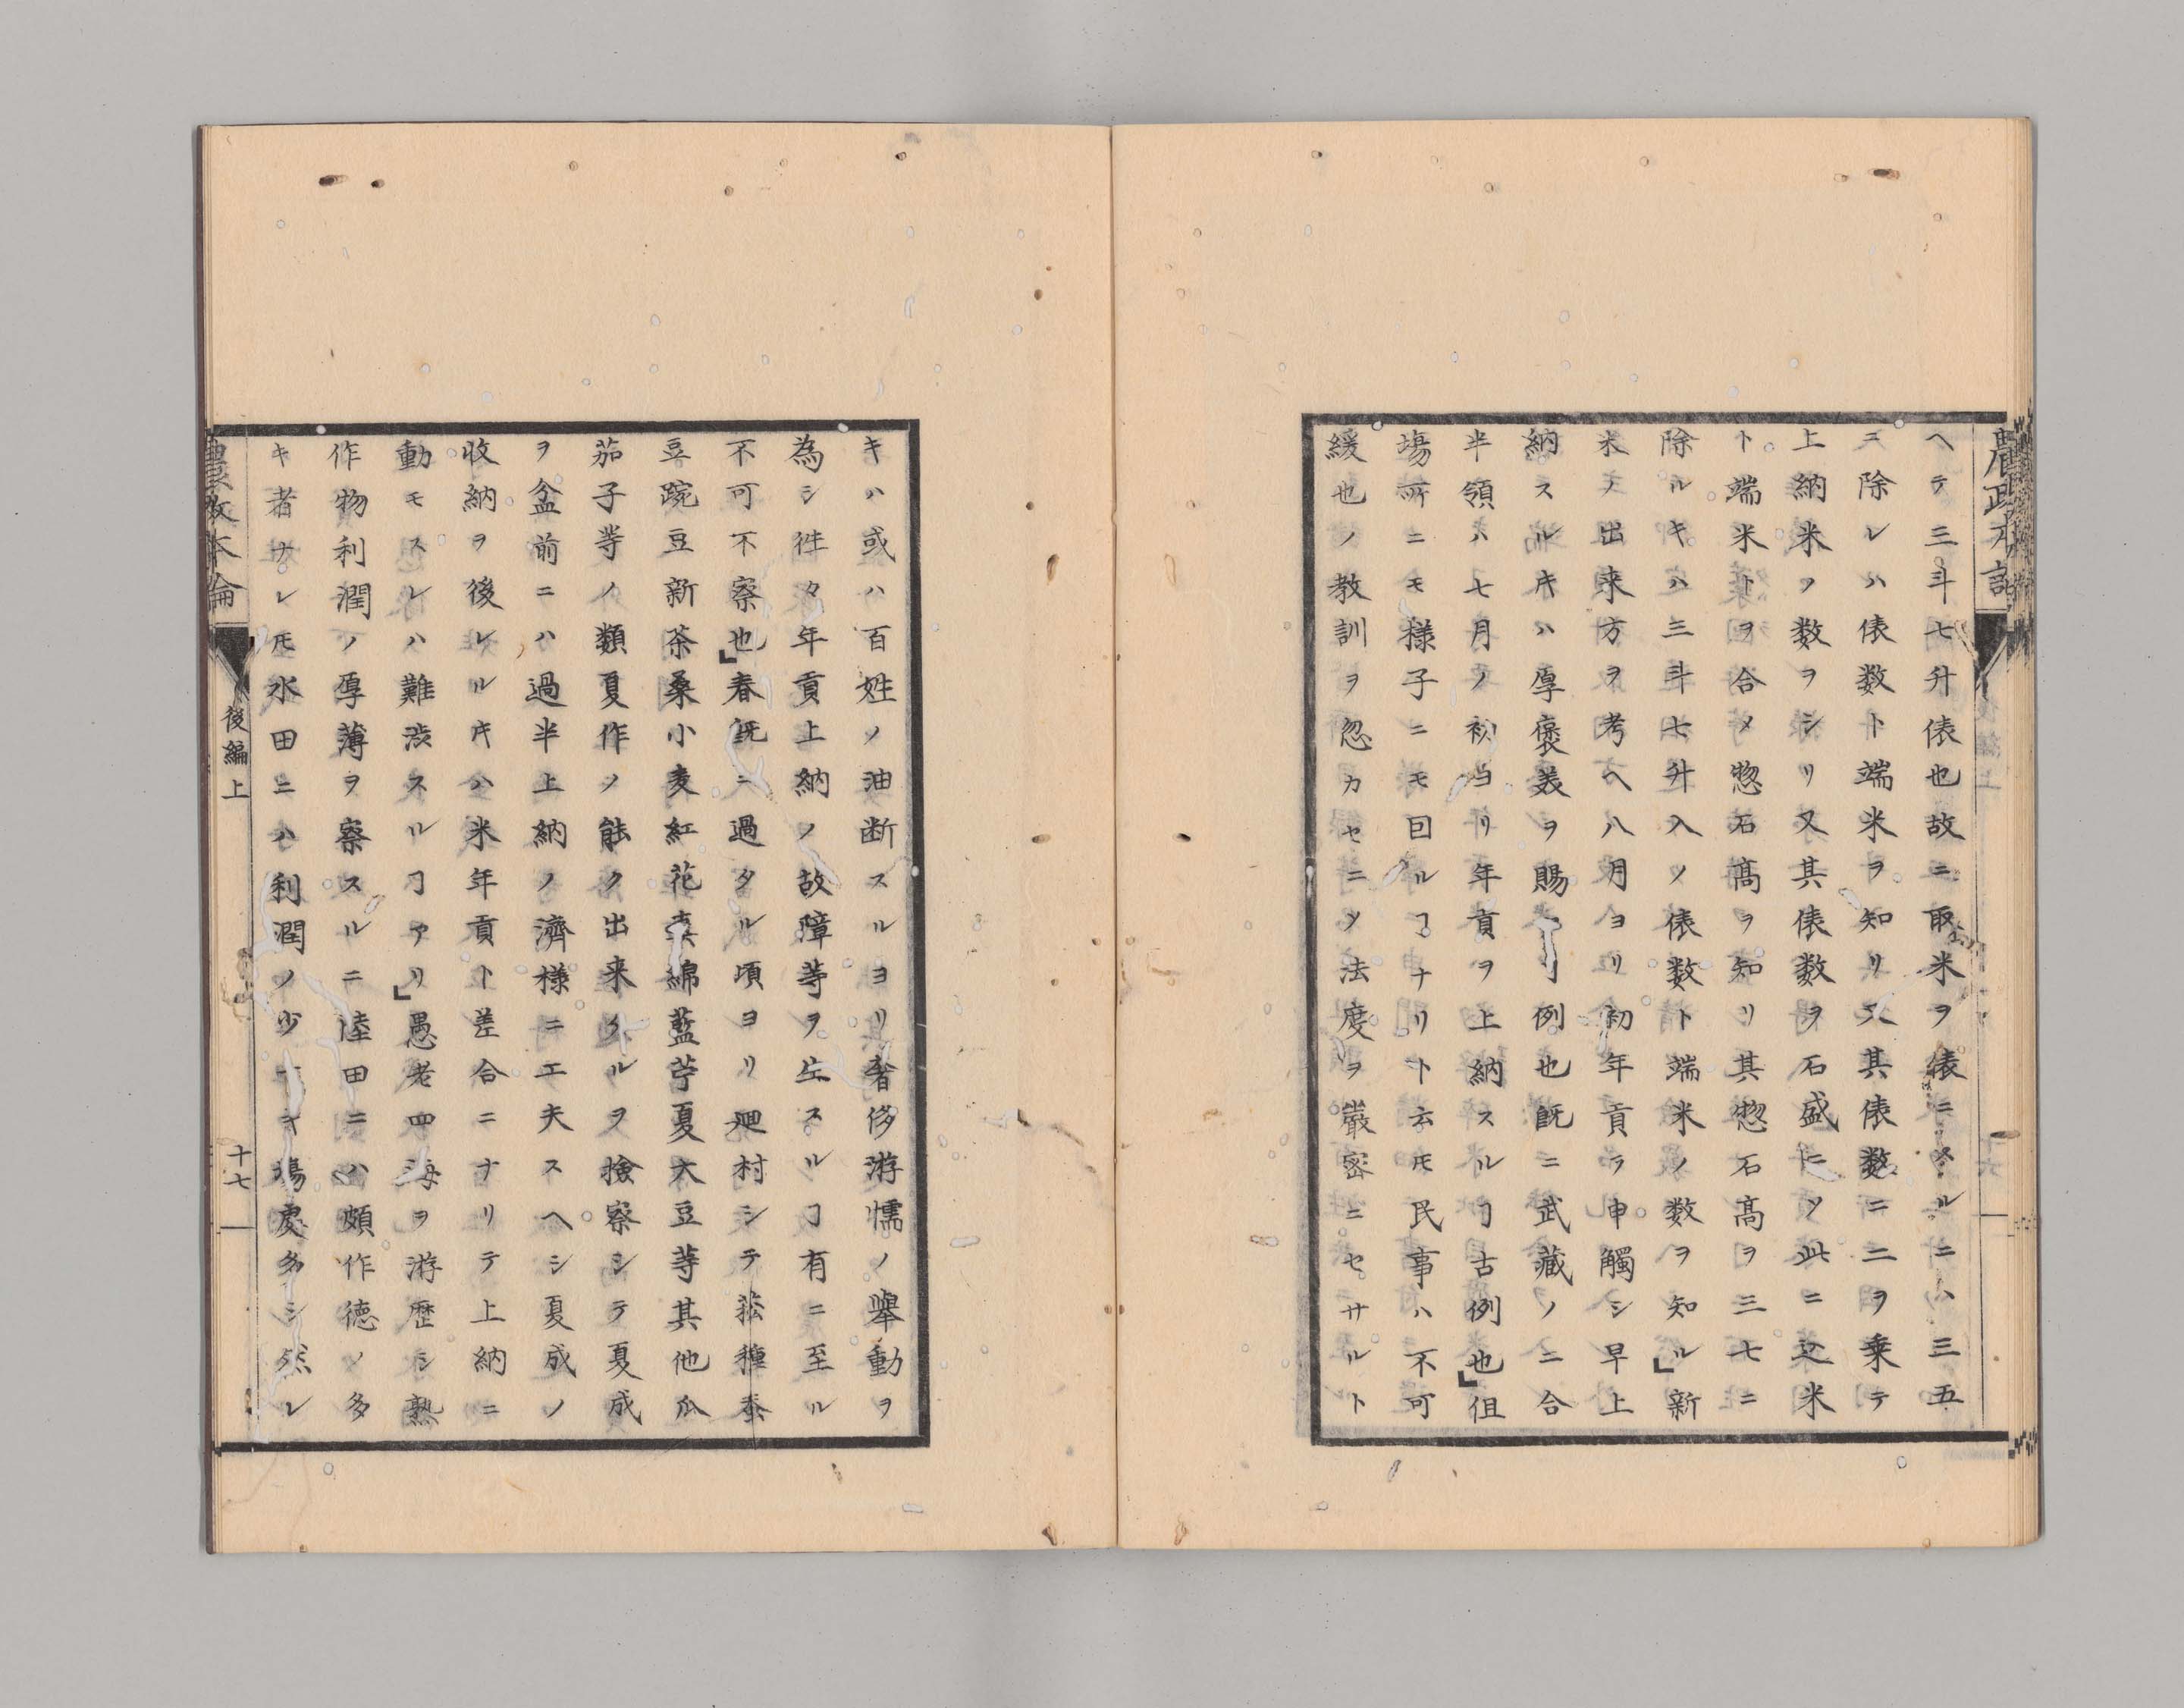 農政本論
ヘテ三斗七升俵也故ニ取米ヲ俵ニスルニハ三五
ニ除レハ俵数ト端米ヲ知リ又其俵数ニ二ヲ乗テ
上納米ノ数ヲシリ又其俵数ヲ石盛ニシ此ニ延米
ト端米トヲ合メ惣石高ヲ知リ其惣石高ヲ三七ニ
除ルキハ三斗七升入ノ俵数ト端米ノ数ヲ知ル」新
米ノ出来方ヲ考ヘ八月ヨリ初年貢ヲ申觸シ早上
納スル𪜈ハ厚褒美ヲ賜フヿ例也既ニ武蔵ノ二合
半領ハ七月ノ初当リ年貢ヲ上納スルヿ古例也」但
塲所ニモ様子ニモ回ルヿナリト云𪜈民事ハ不可
緩也ノ教訓ヲ忽カセニシ法度ヲ嚴密ニセサルト
キハ或ハ百姓ノ油断スルヨリ奢侈游懦ノ擧動ヲ
為シ徃々年貢上納ノ故障等ヲ生スルヿ有ニ至ル
不可不察也」春既ニ過タル頃ヨリ廻村シテ菘種蚕
豆豌豆新茶桑小麦紅花真綿藍苧夏大豆等其他瓜
茄子等ノ類夏作ノ能ク出来タルヲ撿察シテ夏成
ヲ盆前ニハ過半上納ノ濟様ニ工夫スヘシ夏成ノ
收納ヲ後レルキハ米年貢ト差合ニナリテ上納ニ
動モスレハ難渋スルヿアリ」愚老四海ヲ游歴シ熟
作物利潤ノ厚薄ヲ察スルニ陸田ニハ頗作徳ノ多
キ者ナレ𪜈水田ニハ利潤ノ少ナキ塲處多シ然レ
農政本論
後編上
十七